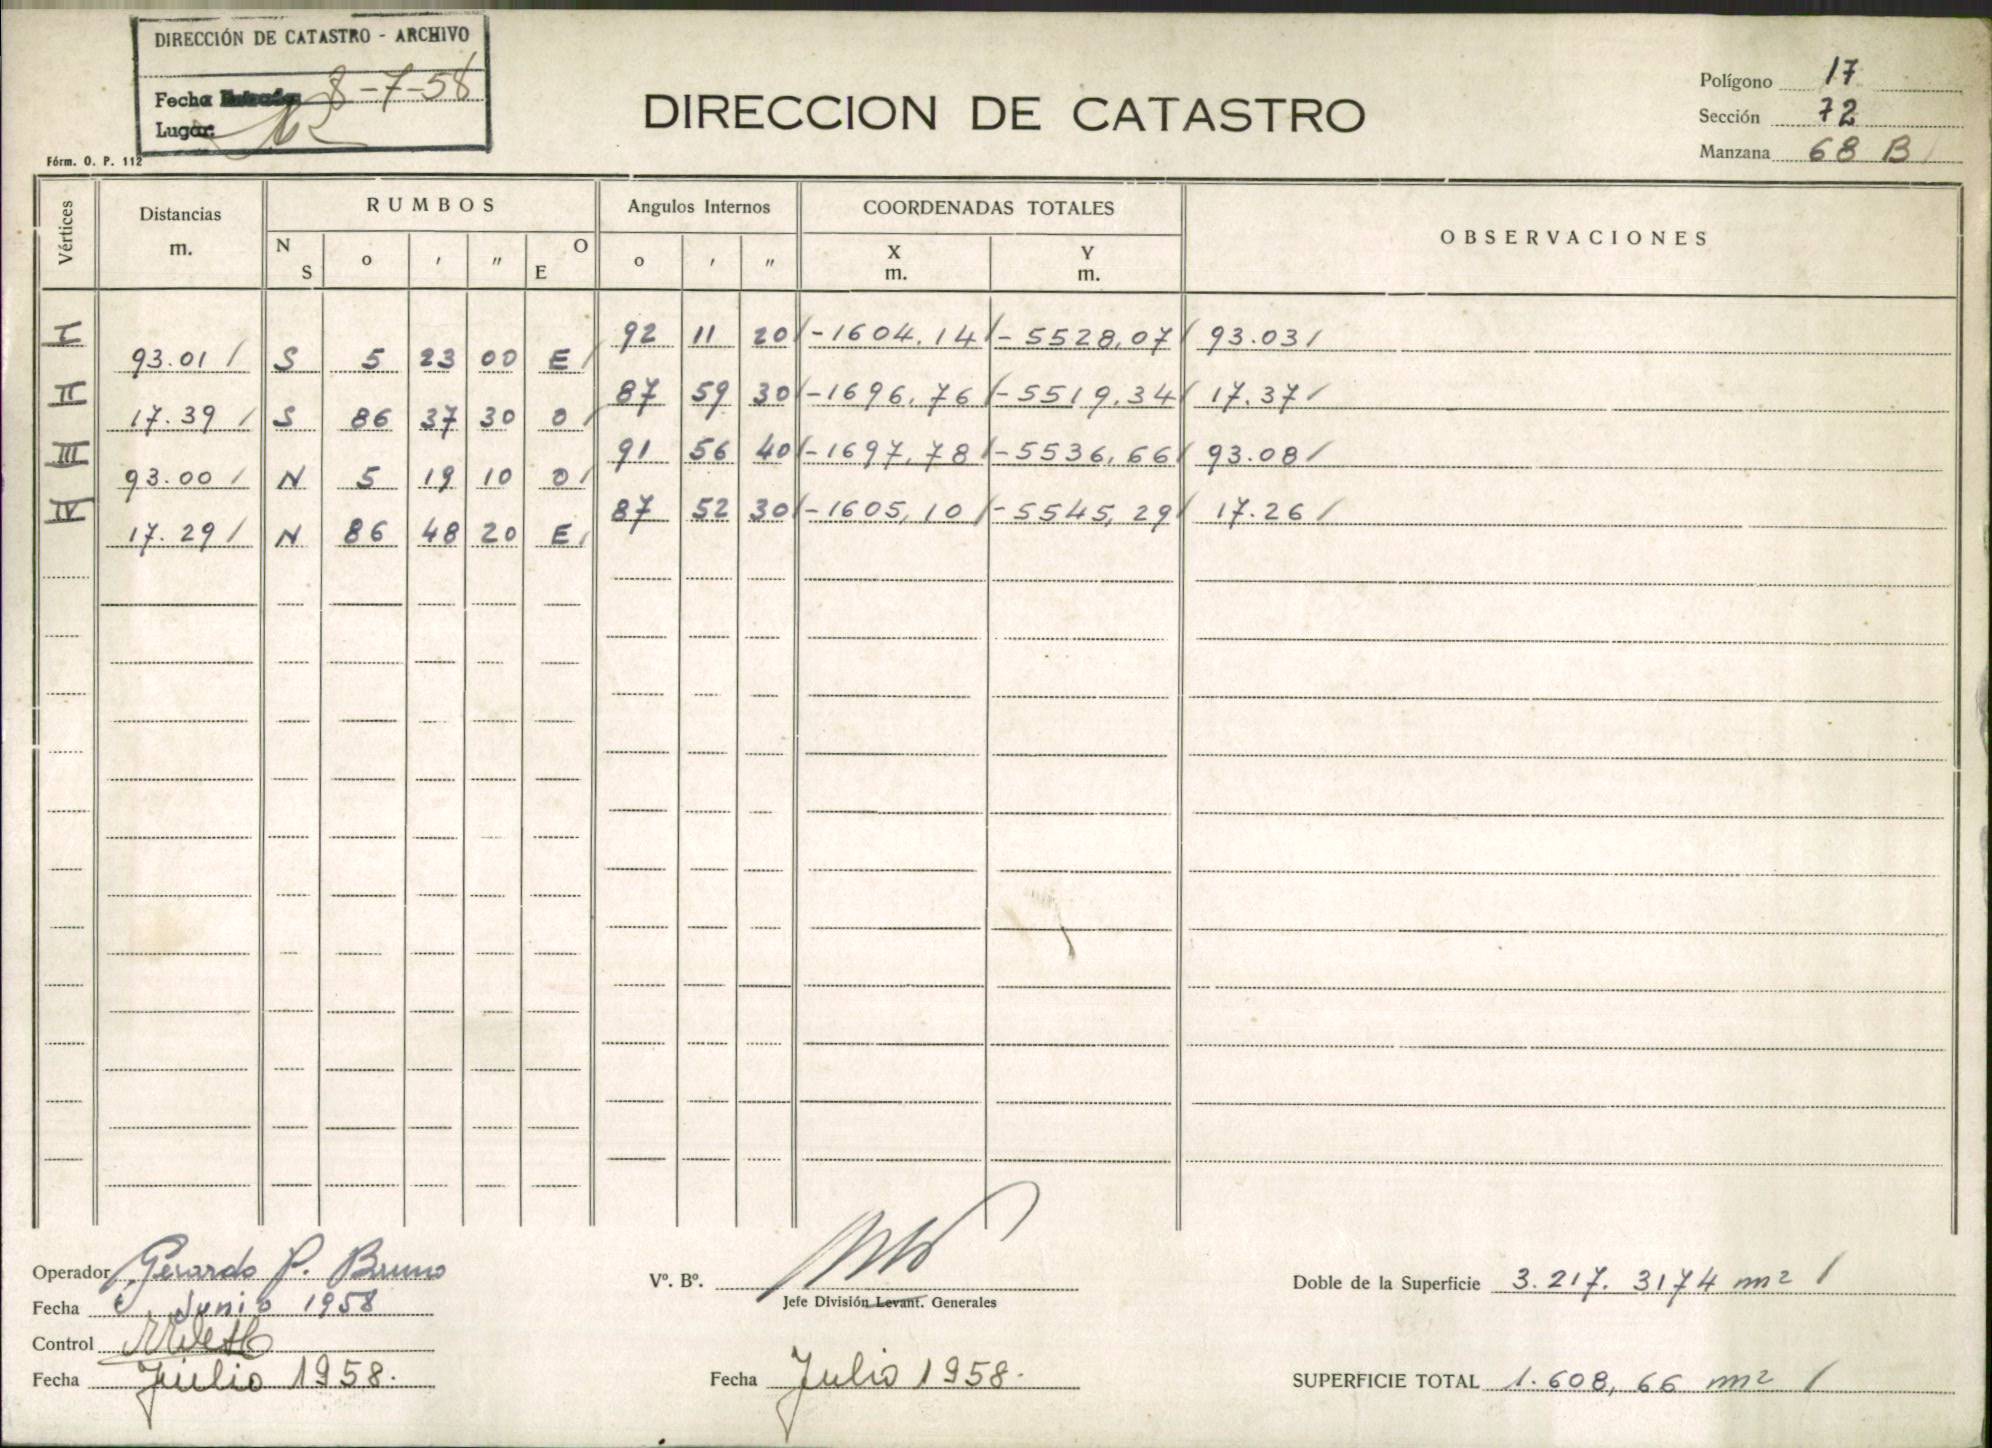 DIRECCIÓN DE CATASTRO - ARCHIVO
Fecha 8-7-58
Lugar
Fórm. O. P. 112
DIRECCION DE CATASTRO
Polígono 17
Sección 72
Manzana 68 B
Vértices Distancias m. RUMBOS Angulos Internos COORDENADAS TOTALES OBSERVACIONES
N S o ' " E O o ' " X m. Y m.
I 92 11 20 -1604.14 -5528,07 93.03
93.01 S 5 23 00 E
II 87 59 30 -1696.76 -5519.34 17.37
17.39 S 86 37 30 O
III 91 56 40 -1697.78 -5536,66 93.08
93.00 N 5 19 10 O
IV 87 52 30 -1605,10 -5545,29 17.26
17.29 N 86 48 20 E
Operador Gerardo P. Bruno
Fecha Junio 1958
Control
Fecha Julio 1958.
Vº. Bº.
Jefe División Levant. Generales
Fecha Julio 1958.
Doble de la Superficie 3.217.3174 m2
SUPERFICIE TOTAL 1.608,66 m2